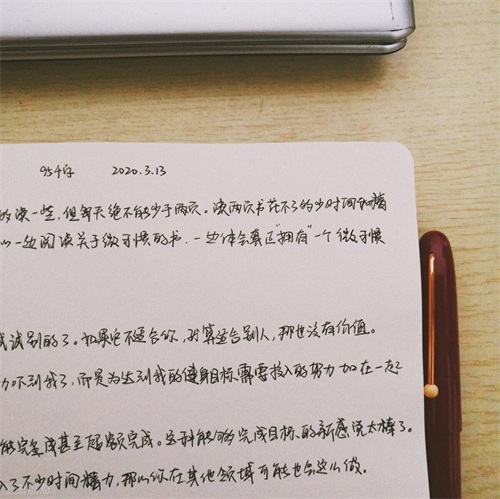 954字 2020.3.13
的读一些,但每天绝不能少于两页。读两页书花不了的少时间和精
以一边阅读关于微习惯的书,一边体会真正"拥有"一个微习惯
试试别的了。如果它不适合你,就算适合别人,那也没有价值。
力不到我了,而是为达到我的健身目标需要投入的努力加在一起
能完成甚至超额完成。这种能够完成目标的新感觉太棒了。
入了不少时间精力,那么你在其他领域可能也会这么做。